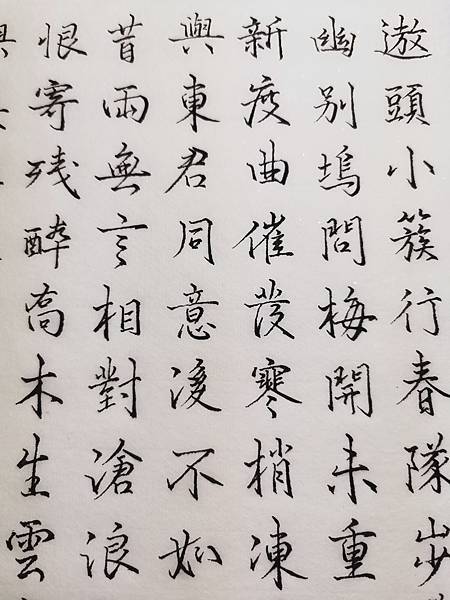 遨頭小簇行春隊步
幽別塢問梅開未重
新度曲催發寒梢凍
與東君同意後不如
昔兩無言相對滄浪
恨寄残醉喬木生雲